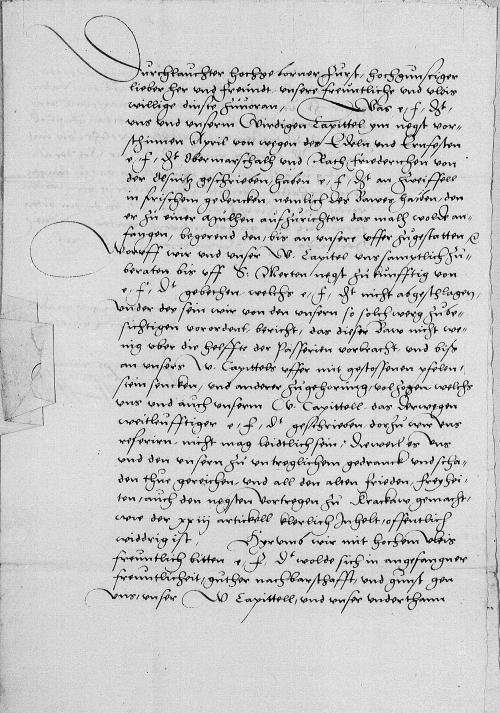 Durchlauchter hochge borner Furst, hochgunstiger
lieber her und freundt, unsere freuntliche und vleis
willige dinste zuvoran, Was e, f, dt,
uns und unserm Wirdigen Capittel ym negst vor
schinnen April von wegen des Edeln und Ernfesten
e, f, dt Obermarschalh und Rath, Friderichen von
der Olsnitz geschrieben, haben e, f, dt an zweiffell
in frischem gedencken, nemlich des Bawes halben, den
er zu einer Mulhen auffzurichten das malh wolde an
fangen, begerend den bis an unsere uffer zugestatten,
Woruff wir und unser W. Capitel uns samptlich zu
beraten bis uff S. Merten negst zukunfftig von
e, f, dt gebethen, welchs e, f, dt nicht abgeschlagen,
under des sein wir von den unsern so solch werg zube
sichtigen vorordent, bericht, das dieser Baw nicht we
nig uber die helffte der Passerien vorbracht, und biss
an unsers W. Capittels uffer mit gestossenen pfelen,
stein sencken, und anderer zugehorung, volzogen welchs
uns und auch unserm W. Capittell, das derwegen
weitleufftiger e, f, dt geschrieben, dorzu wir uns
referirn, nicht mag leidtlich sein, Dieweil es uns
und den unsern zu untreglichem gedranck und scha
den thut gereichen, und all den alten frieden, freyhei
ten, auch den negsten vortregen zu Krackaw gemacht,
wie der xxiij artickell klerlich Inholt, offentlich
widdrig ist, Hyrumb wir mit hochem vleis
freuntlich bitten e, f, dt wolde sich in angefangner
freuntlicheit, guther nachbarschafft, und gunst gen
uns, unser W Capittell, und unser underthann